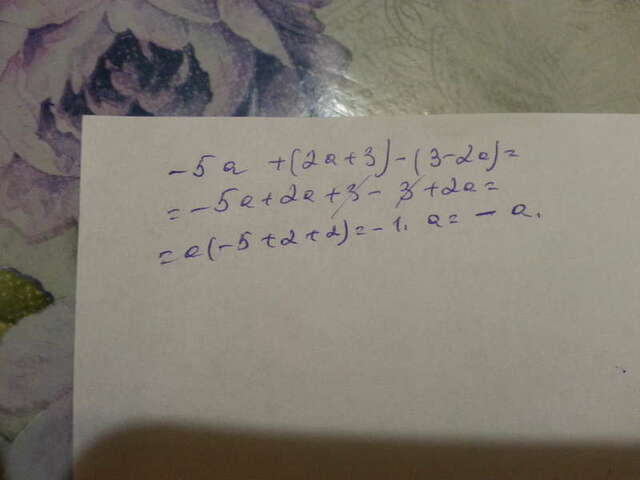 -5a +(2a+3)-(3-2a)=
=-5a+2a+3-3+2a=
=a(-5+2+2)=-1·a=-a.